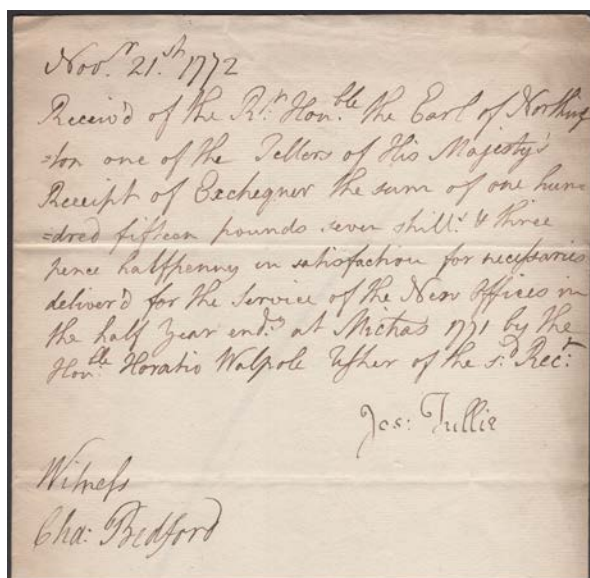 Nov.r 21.st 1772
Receiv'd of the R.t Hon.ble the Earl of Northing
=ton one of the Tellers of His Majesty's
Receipt of Exchequer the sum of one hun
=dred fifteen pounds seven shill.s & three
pence halfpenny in satisfaction for necessaries
deliver'd for the Service of the New Offices in
the half Year end.g at Michas 1771 by the
Hon.ble Horatio Walpole Usher of the s.d Rec.t
Jos: Tullie
Witness
Cha: Bedford